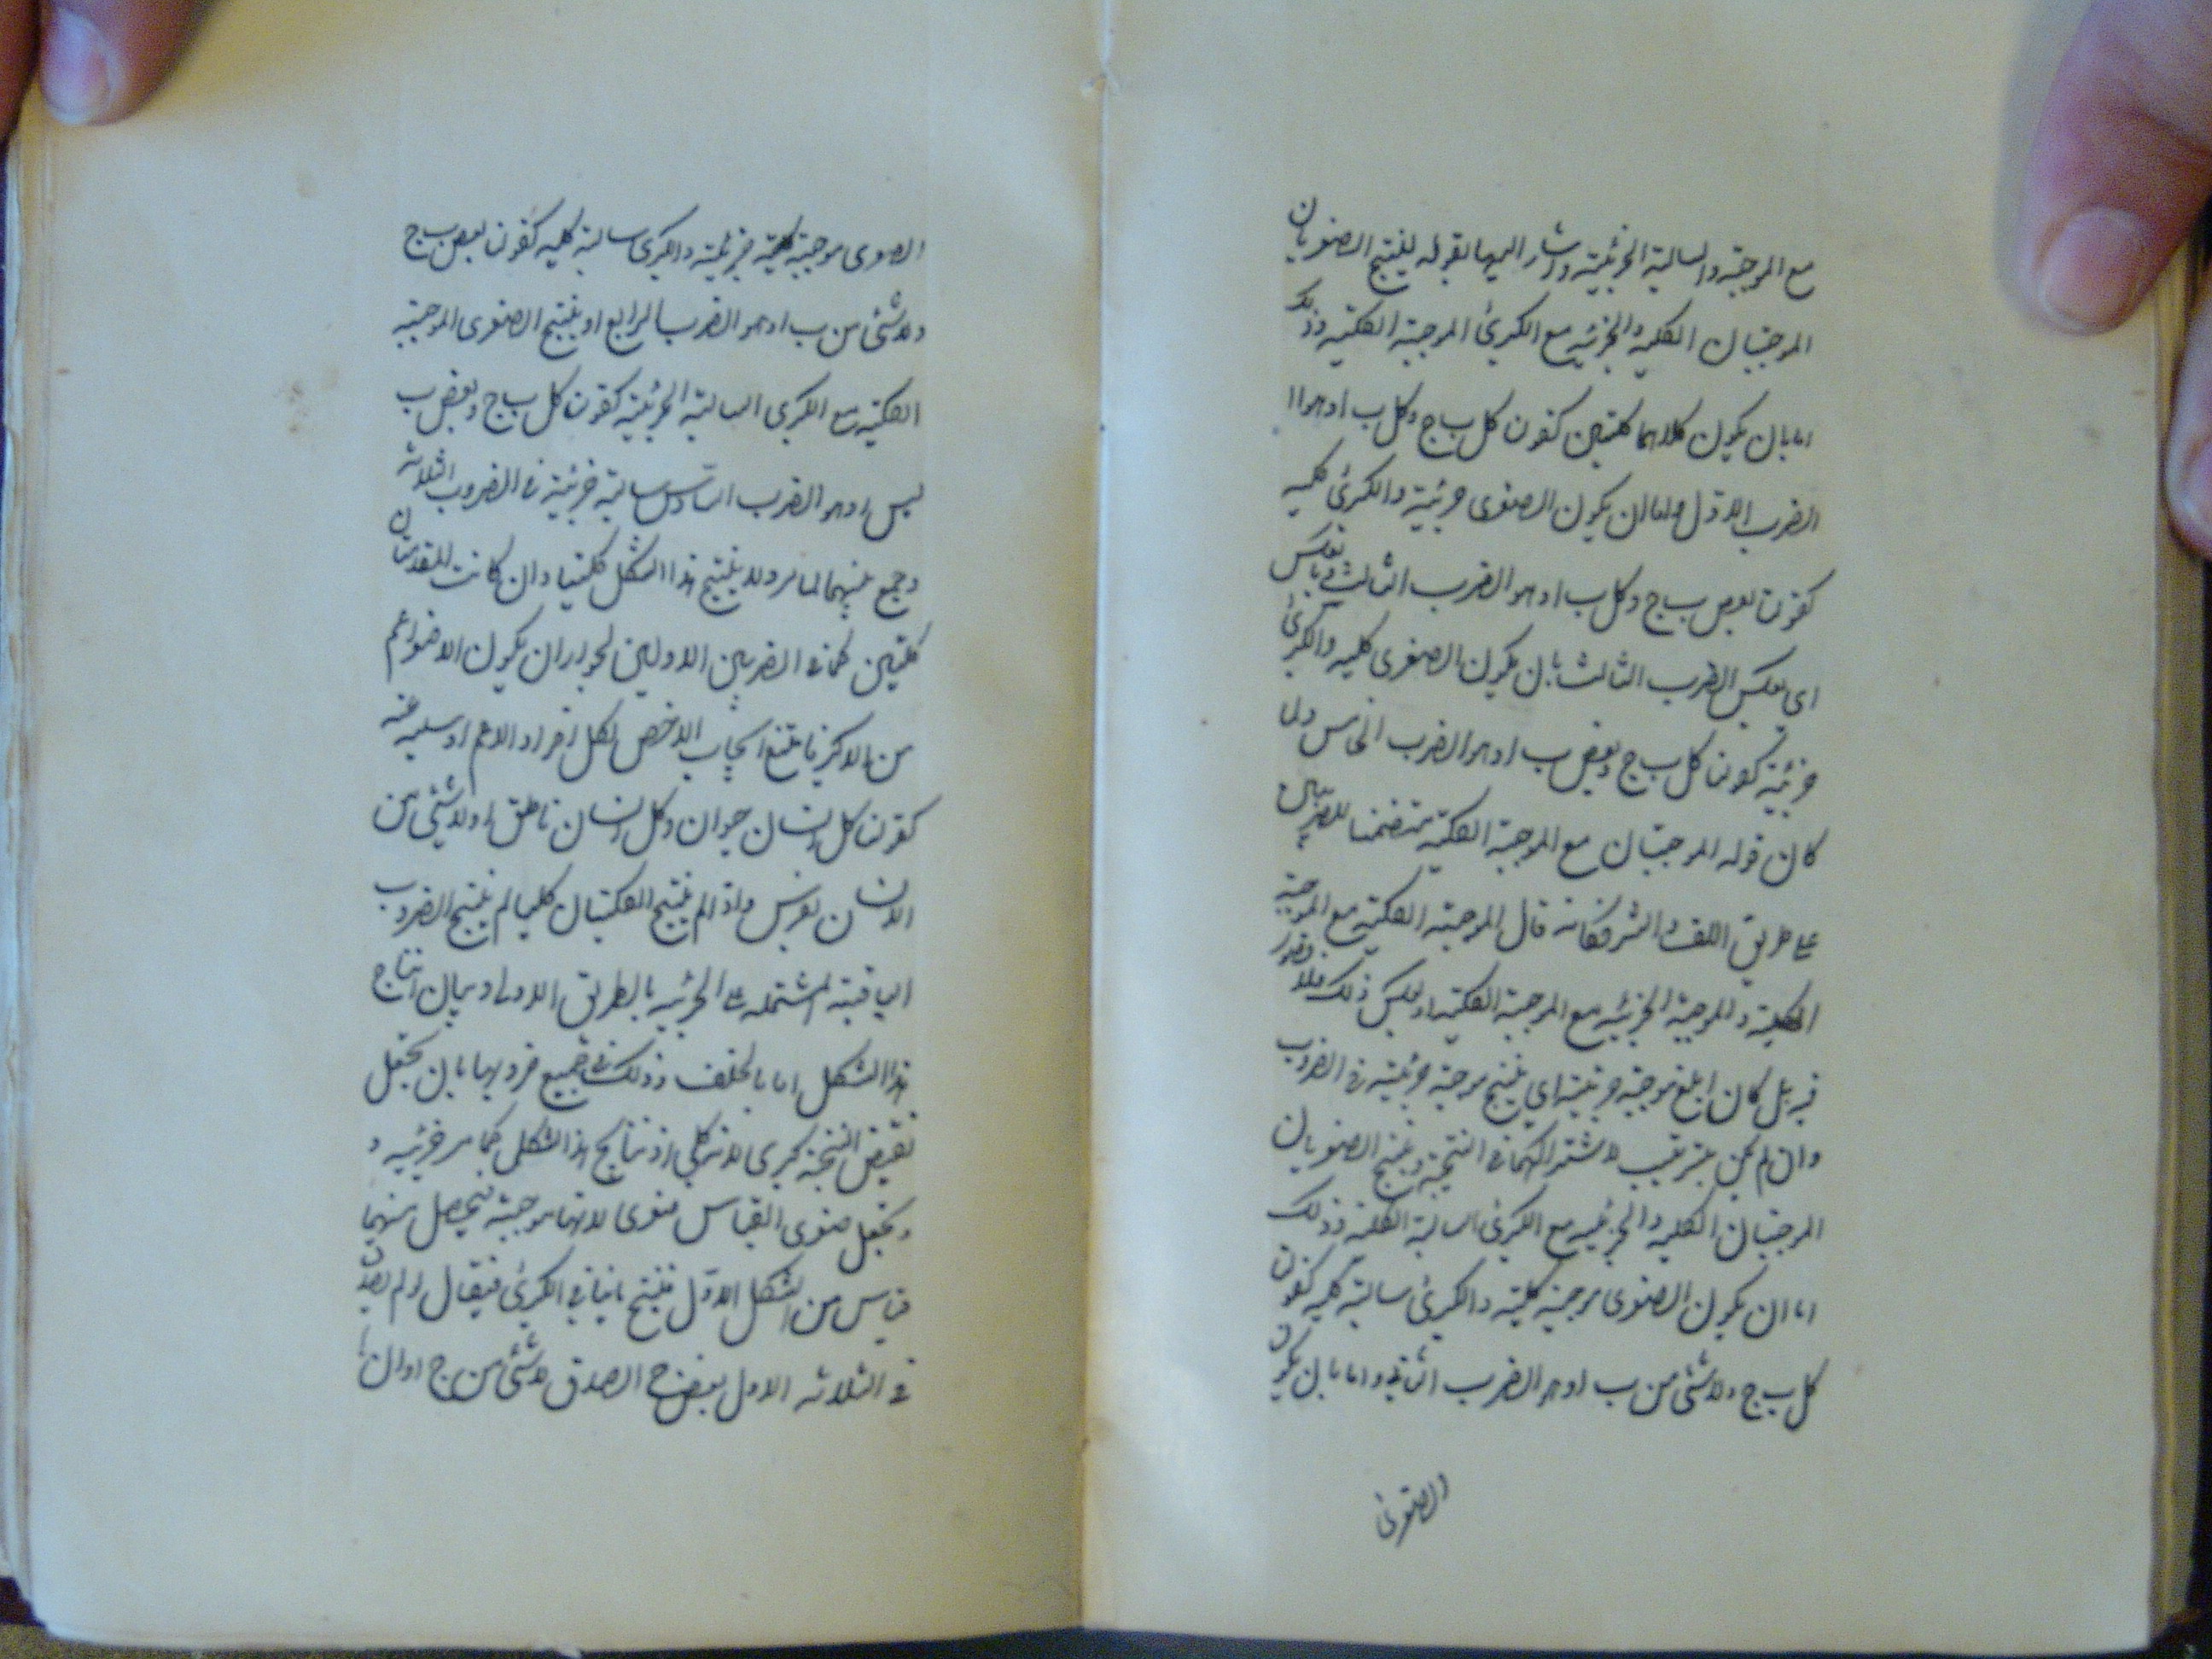 مع الموجبة والسالبة الجزئية واشار اليها بقوله لينتج الصغريان
الموجبتان الكلية والجزئية مع الكبرى الموجبة الكلية وذلك
اما بان يكون كلاهما كليتين كقولنا كل ب ج وكل ب ا وهو ا
الضرب الاول واما ان يكون الصغرى جزئية والكبرى كلية
كقولنا بعض ب ج وكل ب ا وهو الضرب الثالث او بالعكس
اى بعكس الضرب الثالث بان يكون الصغرى كلية والكبرى
جزئية كقولنا كل ب ج وبعض ب ا وهو الضرب الخامس ولما
كان قوله الموجبتان مع الموجبة الكلية متضمنا للضربين
على طريق اللف والنشر فكانه قال الموجبة الكلية مع الموجبة
الكلية والموجبة الجزئية مع الموجبة الكلية او بعكس ذلك فلا
فيه بل كان ابلغ موجبة جزئية اي ينتج موجبة جزئية في الضروب
وان لم يكن بترتيب لاشتراكهما في النتيجة وينتج الصغريان
الموجبتان الكلية والجزئية مع الكبرى السالبة الكلية وذلك
اما ان يكون الصغرى موجبة كلية والكبرى سالبة كلية كقولنا
كل ب ج ولا شئ من ب ا وهو الضرب الثاني واما بان يكون
الصغرى
الصغرى موجبة جزئية والكبرى سالبة كلية كقولنا بعض ب ج
ولا شئ من ب ا وهو الضرب الرابع او ينتج الصغرى الموجبة
الكلية مع الكبرى السالبة الجزئية كقولنا كل ب ج وبعض ب
ليس ا وهو الضرب السادس سالبة جزئية في الضروب الثلاثة
وجمع بينهما لما مر ولا ينتج هذا الشكل كليا وان كانت المقدمتان
كليتين كما في الضربين الاولين لجواز ان يكون الاصغر اعم
من الاكبر فامتنع ايجاب الاخص لكل افراد الاعم او سلبه عنه
كقولنا كل انسان حيوان وكل انسان ناطق او لا شئ من
الانسان بفرس واذا لم ينتج الكليتان كليا لم ينتج الضروب
الباقية المشتملة على الجزئية بالطريق الاولى وبيان انتاج
هذا الشكل اما بالخلف وذلك في جميع ضروبها بان يجعل
نقيض النتيجة كبرى لانه كلي اذ نتايج هذا الشكل كما مر جزئية و
ويجعل صغرى القياس صغرى لانها موجبة فيحصل منهما
قياس من الشكل الاول فينتج ما ينافي الكبرى فيقال لو لم يصدق
في الثلاثة الاول بعض ج ا لصدق لا شئ من ج ا وان